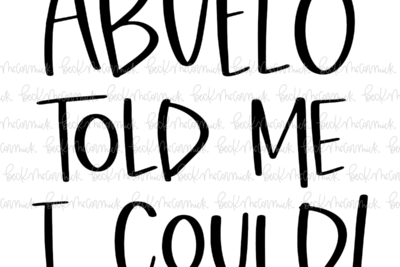 ABUELO
TOLD ME
I COULD!